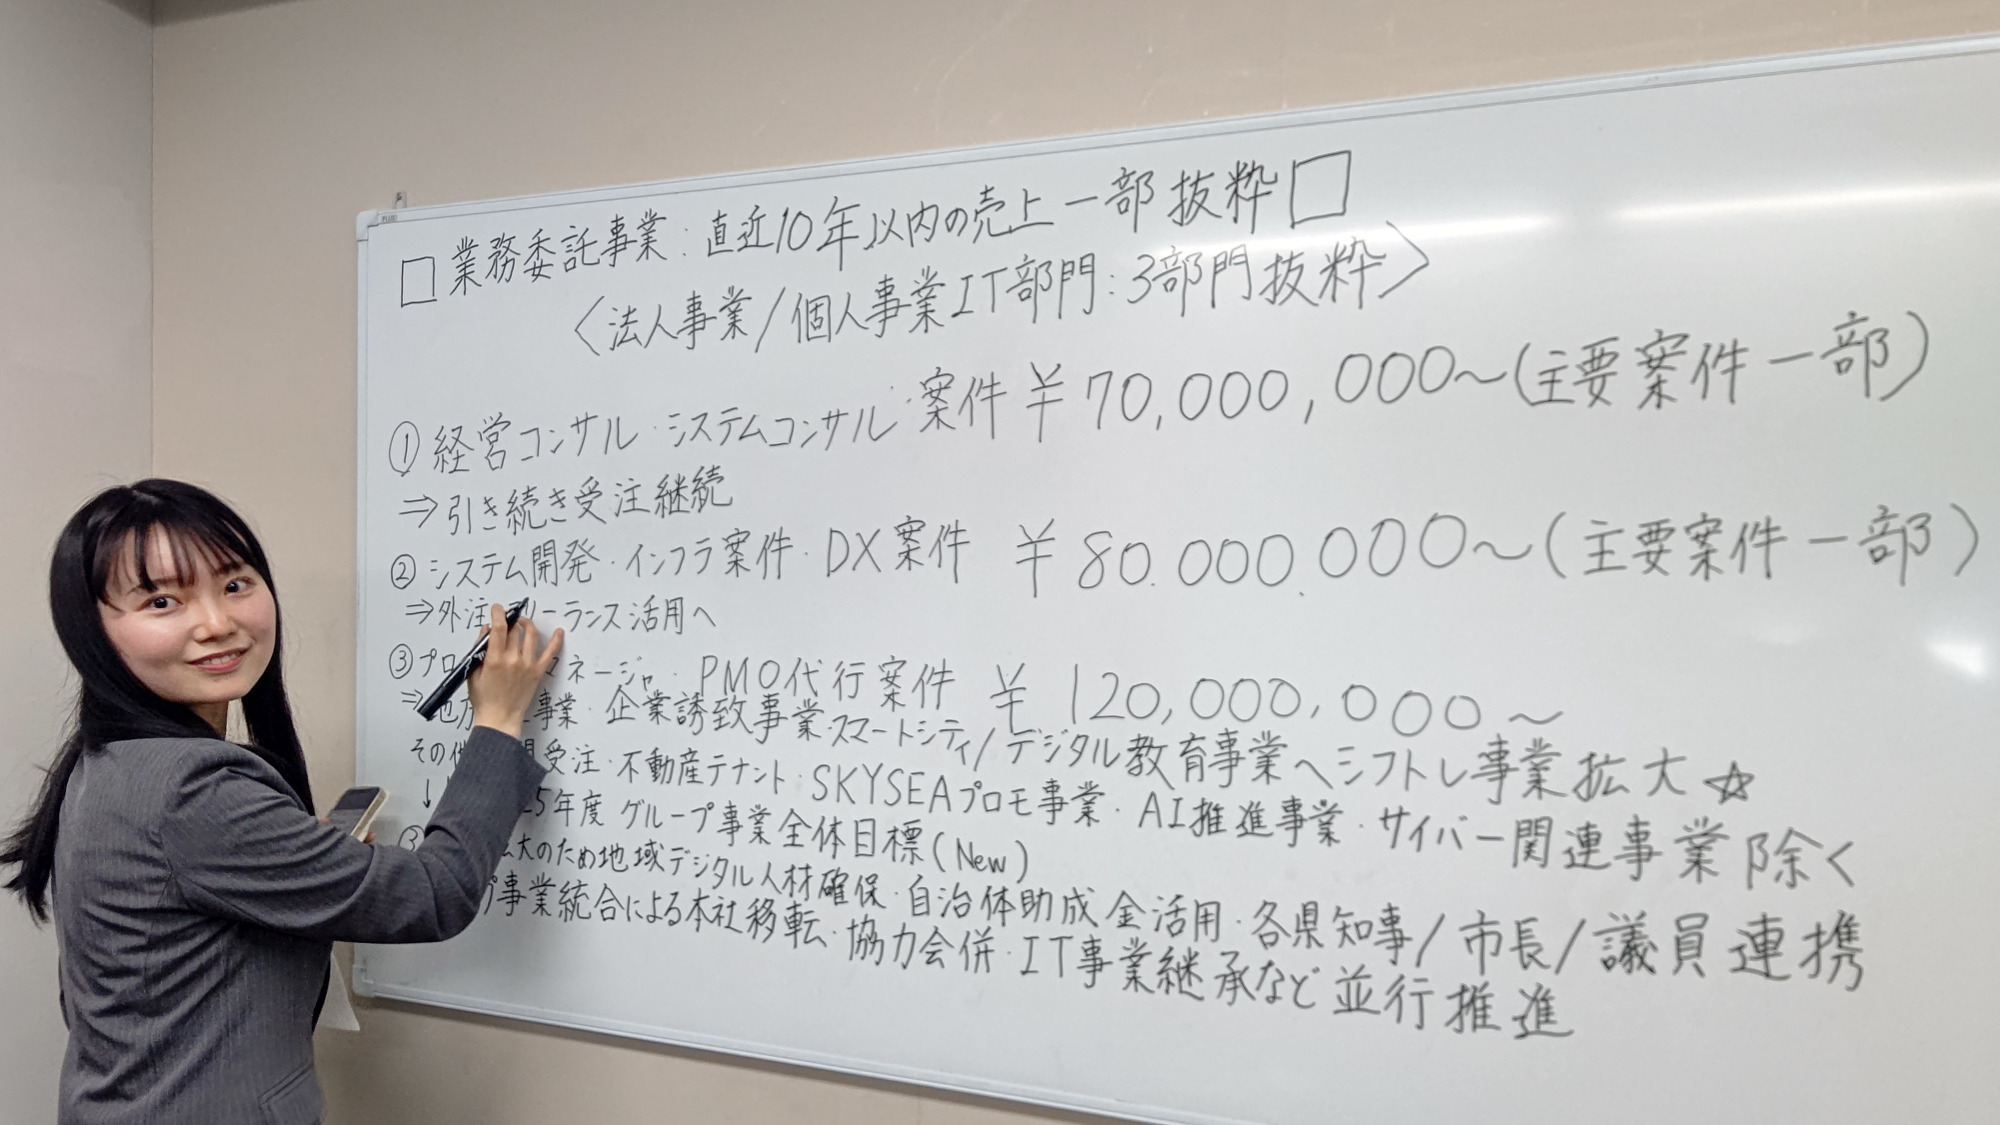 □業務委託事業:直近10年以内の売上一部抜粋□
〈法人事業/個人事業IT部門:3部門抜粋〉
①経営コンサル・システムコンサル・案件¥70,000,000〜(主要案件一部)
⇒引き続き受注継続
②システム開発・インフラ案件・DX案件 ¥80.000.000〜(主要案件一部)
⇒外注 リーランス活用へ
③プロ マネージャ・PMO代行案件 ¥120,000,000〜
⇒地方 事業・企業誘致事業・スマートシティ/デジタル教育事業へシフトし事業拡大☆
その他 受注・不動産テナント・SKYSEAプロモ事業・AI推進事業・サイバー関連事業除く
↓ 25年度 グループ事業全体目標(New)
③ 拡大のため地域デジタル人材確保・自治体助成金活用・各県知事/市長/議員連携
プ事業統合による本社移転・協力会併・IT事業継承など並行推進